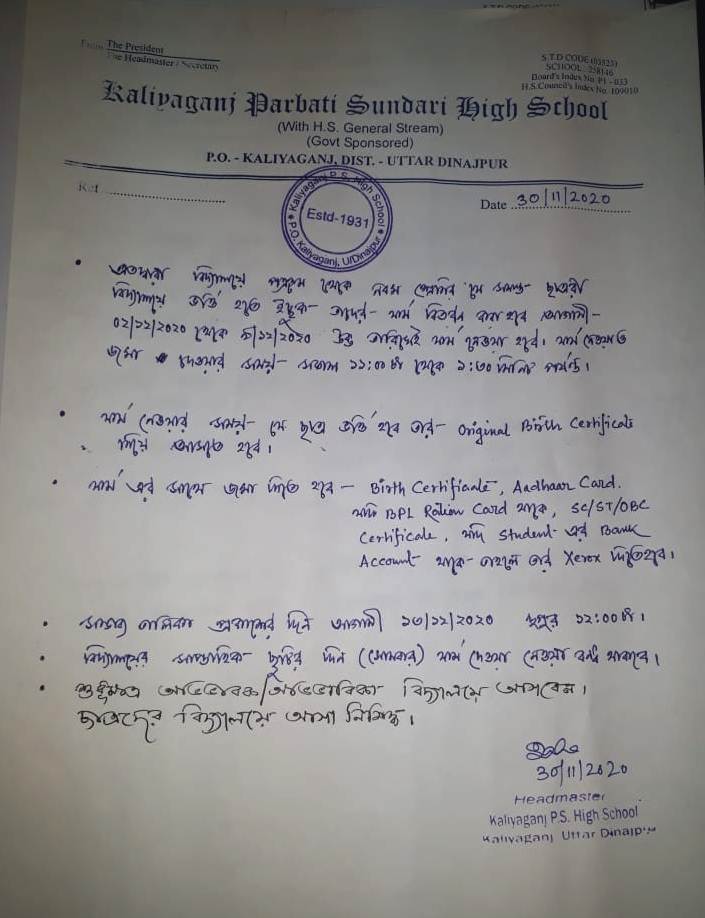 From The President
The Headmaster / Secretary
S.T.D CODE (03523)
SCHOOL : 258146
Board's Index No. P1 - 033
H.S.Council's Index No. 109010
Kaliyaganj Parbati Sundari High School
(With H.S. General Stream)
(Govt Sponsored)
P.O. - KALIYAGANJ, DIST. - UTTAR DINAJPUR
Ref
Date 30/11/2020
Kaliyaganj P.S. High School
Estd-1931
P.O. Kaliyaganj, U/Dinajpur
এতদ্বারা বিদ্যালয়ে পঞ্চম থেকে নবম শ্রেণির যে সমস্ত ছাত্ররা
বিদ্যালয়ে ভর্তি হতে ইচ্ছুক তাদের ফার্ম বিতরন করা হবে আগামী
০২/১২/২০২০ থেকে ৮/১২/২০২০ উক্ত তারিখেই ফার্ম দেওয়া হবে। ফার্ম নেওয়া ও
জমা দেওয়ার সময় - সকাল ১১:০০ টা থেকে ১:৩০ মিনিট পর্যন্ত।
ফার্ম নেওয়ার সময় যে ছাত্র ভর্তি হবে তার Original Birth Certificate
নিয়ে আসতে হবে।
ফার্ম এর সাথে জমা দিতে হবে - Birth Certificate, Aadhaar Card.
যদি BPL Ration Card থাকে, SC/ST/OBC
Certificate, যদি Student এর Bank
Account থাকে তাহলে তার Xerox দিতে হবে।
তালিকা প্রকাশের দিন আগামী ১০/১২/২০২০ দুপুর ১২:০০ টা।
বিদ্যালয়ের সাপ্তাহিক ছুটির দিন (সোমবার) ফার্ম দেওয়া নেওয়া বন্ধ থাকবে।
শুধুমাত্র অভিভাবক/অভিভাবিকা বিদ্যালয়ে আসবেন।
ছাত্রদের বিদ্যালয়ে আসা নিষিদ্ধ।
30/11/2020
Headmaster
Kaliyaganj P.S. High School
Kaliyaganj Uttar Dinajpur